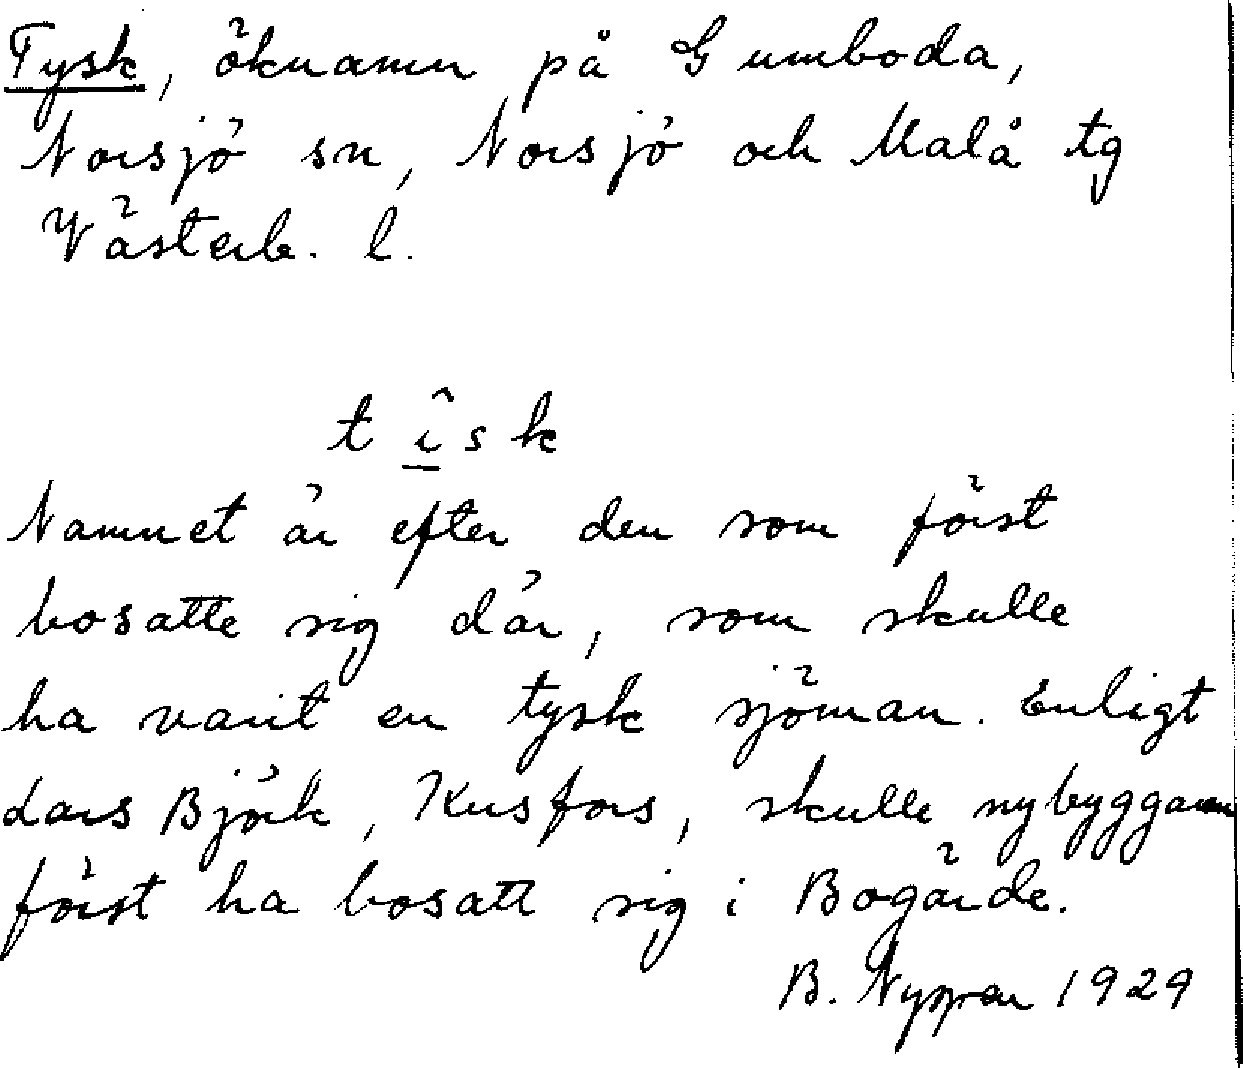 Tysk, öknamn på Gumboda,
Norsjö sn, Norsjö och Malå tg
Västerb. l.
tîsk
Namnet är efter den som först
bosatte sig där, som skulle
ha varit en tysk sjöman. Enligt
Lars Björk, Kusfors, skulle nybyggaren
först ha bosatt sig i Bogärde.
B. 1929